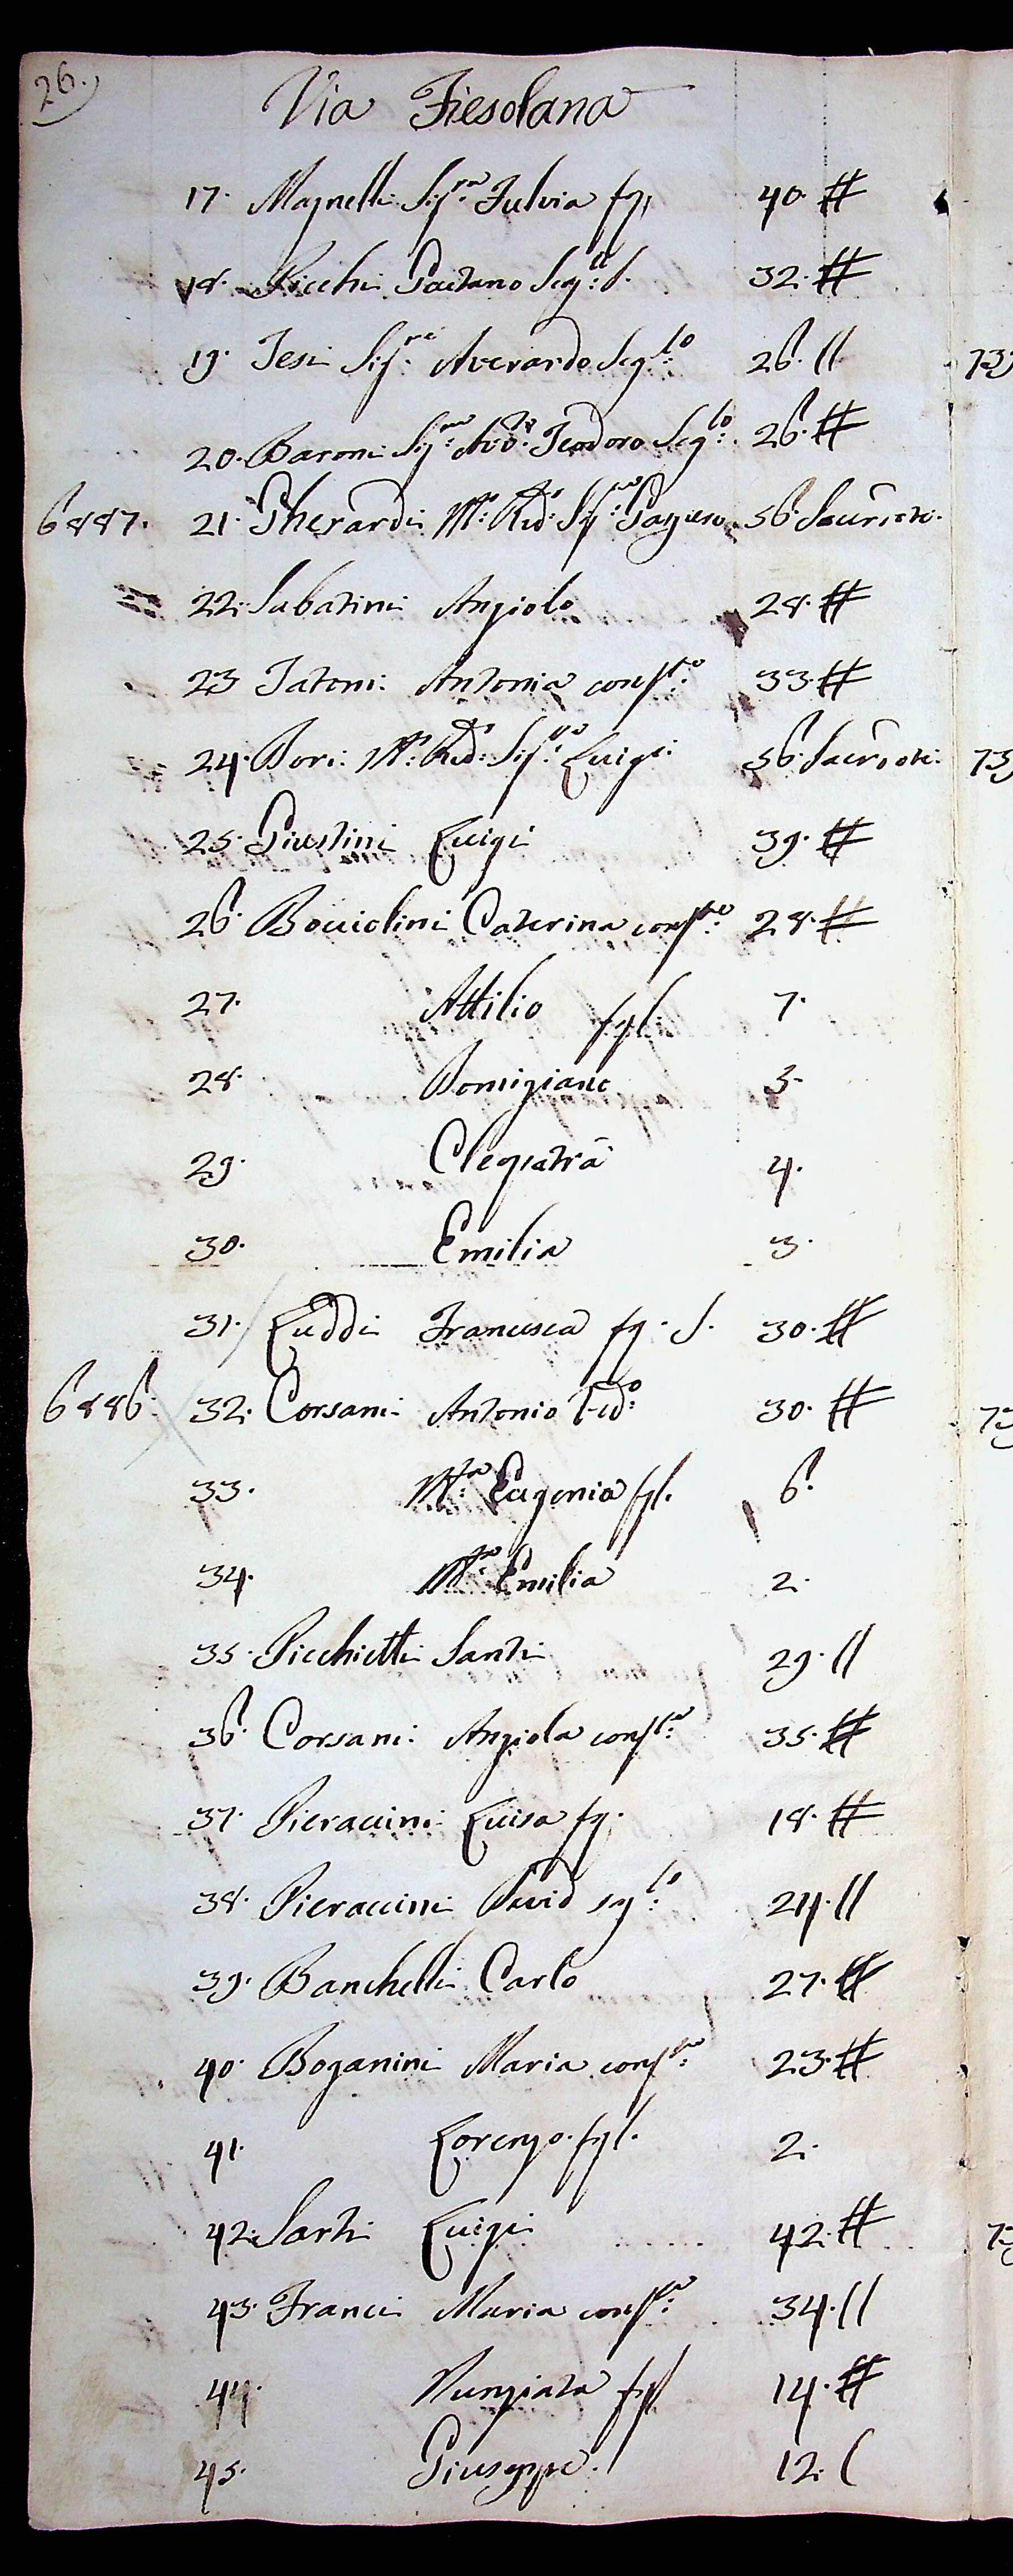 26.
Via Fiesolana
17. Magnelli Sig.ra Fulvia fg. 40. #
18. Picchi Gaetano Seg.to S. 32. #
19. Tesi Sig.re Averardo Seg.to 26. //
20. Baroni Sig.re Avo. Teodoro Seg.to 26. #
6887. 21. Gherardi M.o Rd.o Sig.re 56. Sacerdote.
22. Sabatini Angiolo 28. #
23 Tatoni Antonia cons.te 33. #
24. Bori M.o Rd.o Sig.re Luigi 56. Sacerdote.
25. Giustini Luigi 39. #
26. Bouciolini Caterina cons.te 28. #
27. Attilio fgl. 7.
28. Domigiano 5.
29. Cleopatra 4.
30. Emilia 3.
31. Luddi Francesca fg. S. 30. #
6886. 32. Corsani Antonio Ved.o 30. #
33. M.a Eugenia fgl. 6.
34. M.a Emilia 2.
35. Picchietti Santi 29. //
36. Corsani Angiola cons.ta 35. #
37. Pieraccini Luisa fg. 18. #
38. Pieraccini David seg.to 24. //
39. Banchelli Carlo 27. #
40. Boganini Maria cons.te 23. #
41. Lorenzo fgl. 2.
42. Sarti Luigi 42. #
43. Franci Maria cons.ta 34. //
44. Nunziata fgl 14. #
45. Giuseppe. 12. (